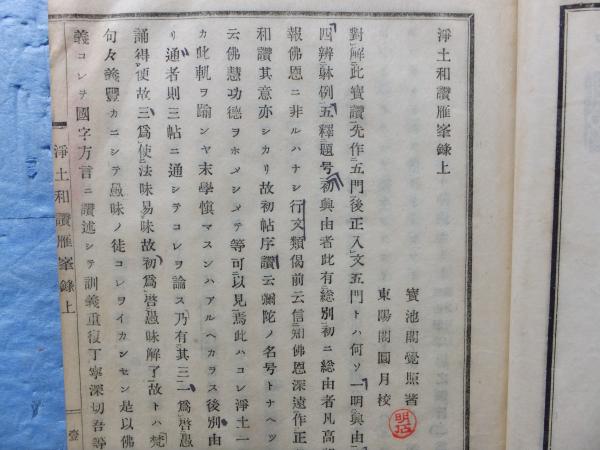 淨土和讃雁峯錄上
寳池閣覺照著
東陽閣圓月校
明石
對解此寳讃先作五門後正入文五門トハ何ソ一明興由
四辨躰例五釋題号初興由者此有総別初ニ総由者凡高
報佛恩ニ非ルハナシ行文類偈前云信知佛恩深遠作正
和讃其意亦シカリ故初帖序讃云彌陀ノ名号トナヘツ
云佛慧功德ヲホメシメテ等可以見焉此ハコレ淨土一
カ此軌ヲ踰ンヤ末學愼マスンハアルヘカラス後別由
リ通者則三帖ニ通シテコレヲ論ス乃有其三一爲啓愚
誦得便故三爲使法味易味故初爲啓愚味解了故トハ梵
句々義豐カニシテ愚昧ノ徒コレヲイカンセン是以佛
義コレヲ國字方言ニ讃述シテ訓義重復丁寧深切吾等
淨土和讃雁峯錄上
壹